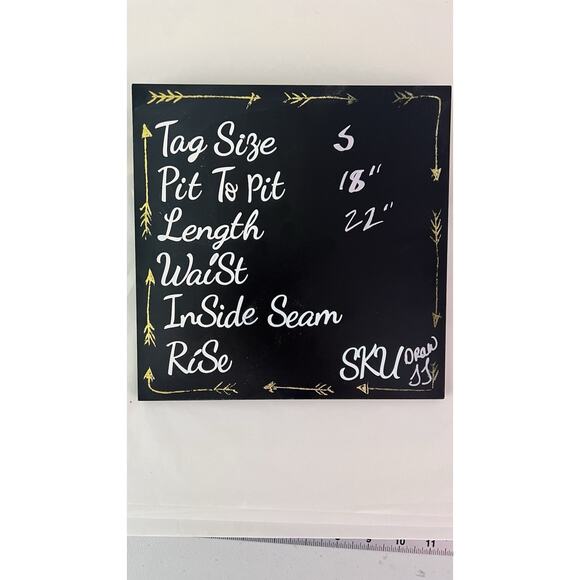 Tag Size S
Pit To Pit 18"
Length 22"
WaiSt
InSide Seam
RiSe SKU Draw
9 10 11